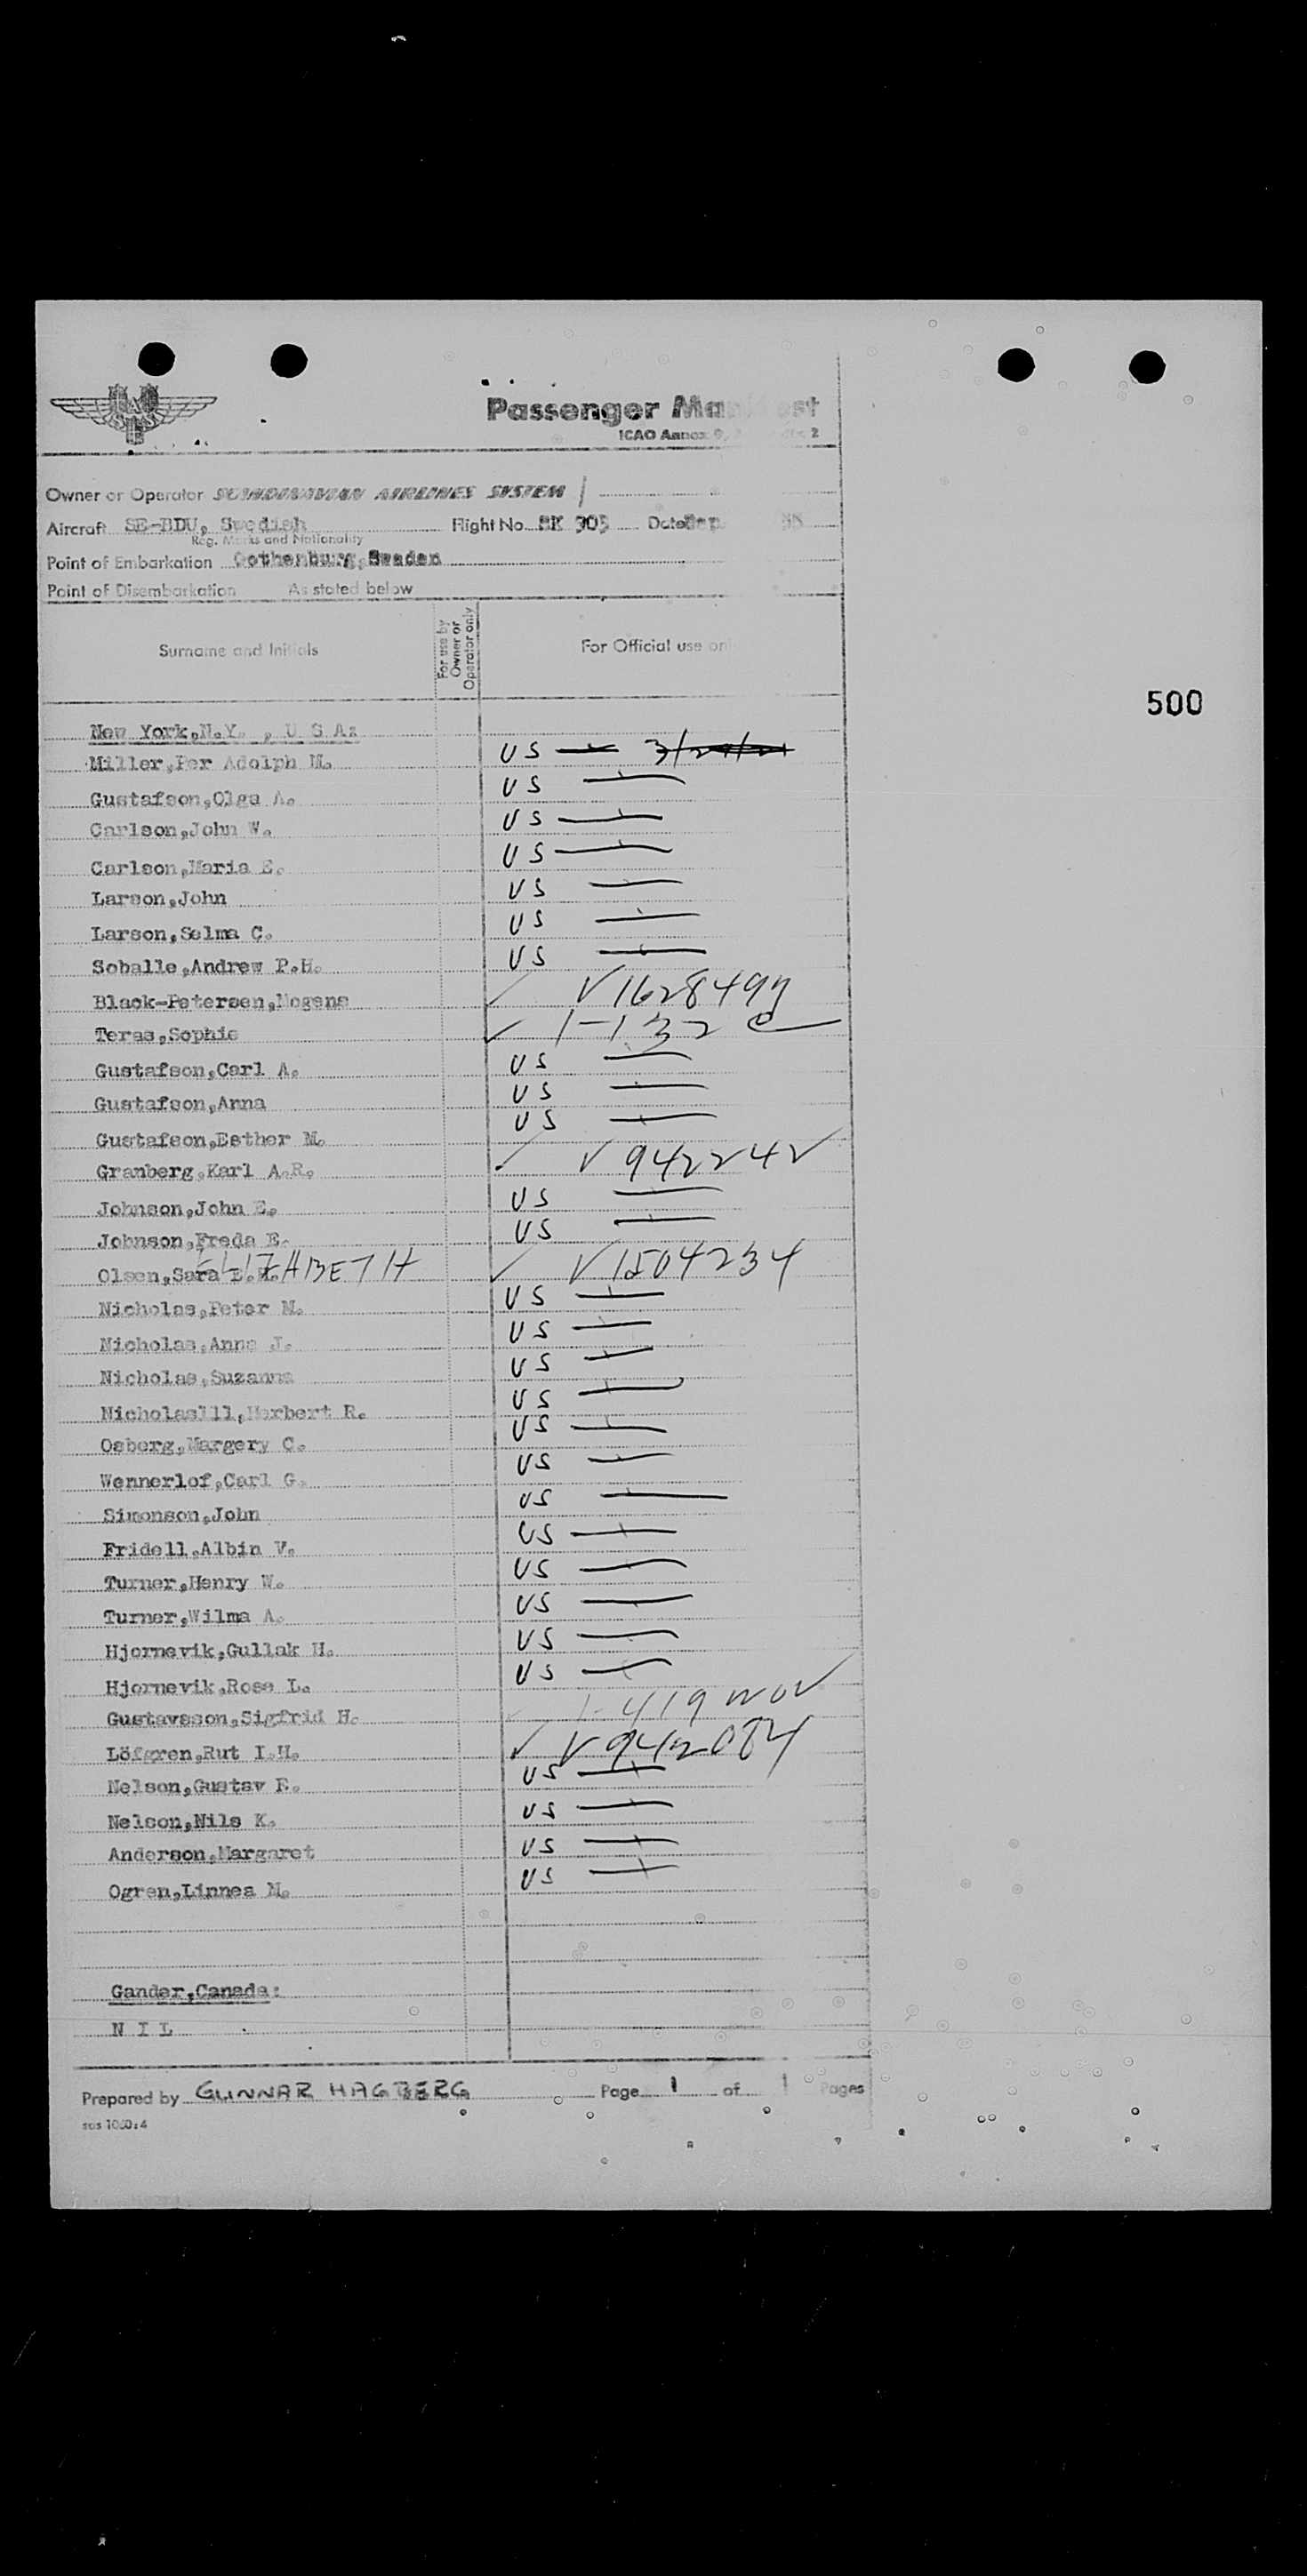 Passenger Man est
ICAO Annex 9, 2
Owner or Operator SCANDINAVIAN AIRLINES SYSTEM
Aircraft SE-BDU, Swedish Flight No. SK 905 Date Sep
Reg. Marks and Nationality
Point of Embarkation Gothenburg, Sweden
Point of Disembarkation As stated below
Surname and Initials For use by Owner or Operator only For Official use onl
500
New York, N.Y. , U S A:
Miller, Per Adolph M. US
Gustafson, Olga A. US
Carlson, John W. US
Carlson, Maria E. US
Larson, John US
Larson, Selma C. US
Soballe, Andrew P.H. US
Black-Petersen, Mogens ✓ V1628499
Teras, Sophie ✓ 1-132
Gustafson, Carl A. US
Gustafson, Anna US
Gustafson, Esther M. US
Granberg, Karl A.R. ✓ V942242
Johnson, John E. US
Johnson, Freda E. US
Olsen, Sara ELIZABETH ✓ V1504234
Nicholas, Peter M. US
Nicholas, Anna J. US
Nicholas, Suzanna US
Nicholaslll, Herbert R. US
Osberg, Margery C. US
Wennerlof, Carl G. US
Simonson, John US
Fridell, Albin V. US
Turner, Henry W. US
Turner, Wilma A. US
Hjornevik, Gullak H. US
Hjornevik, Rose L. US
Gustavsson, Sigfrid H. 1-419
Löfgren, Rut I.H. ✓ V942084
Nelson, Gustav E. US
Nelson, Nils K. US
Anderson, Margaret US
Ogren, Linnea M. US
Gander, Canada:
N I L
Prepared by GUNNAR HAGBERG Page 1 of 1 Pages
sas 1060:4